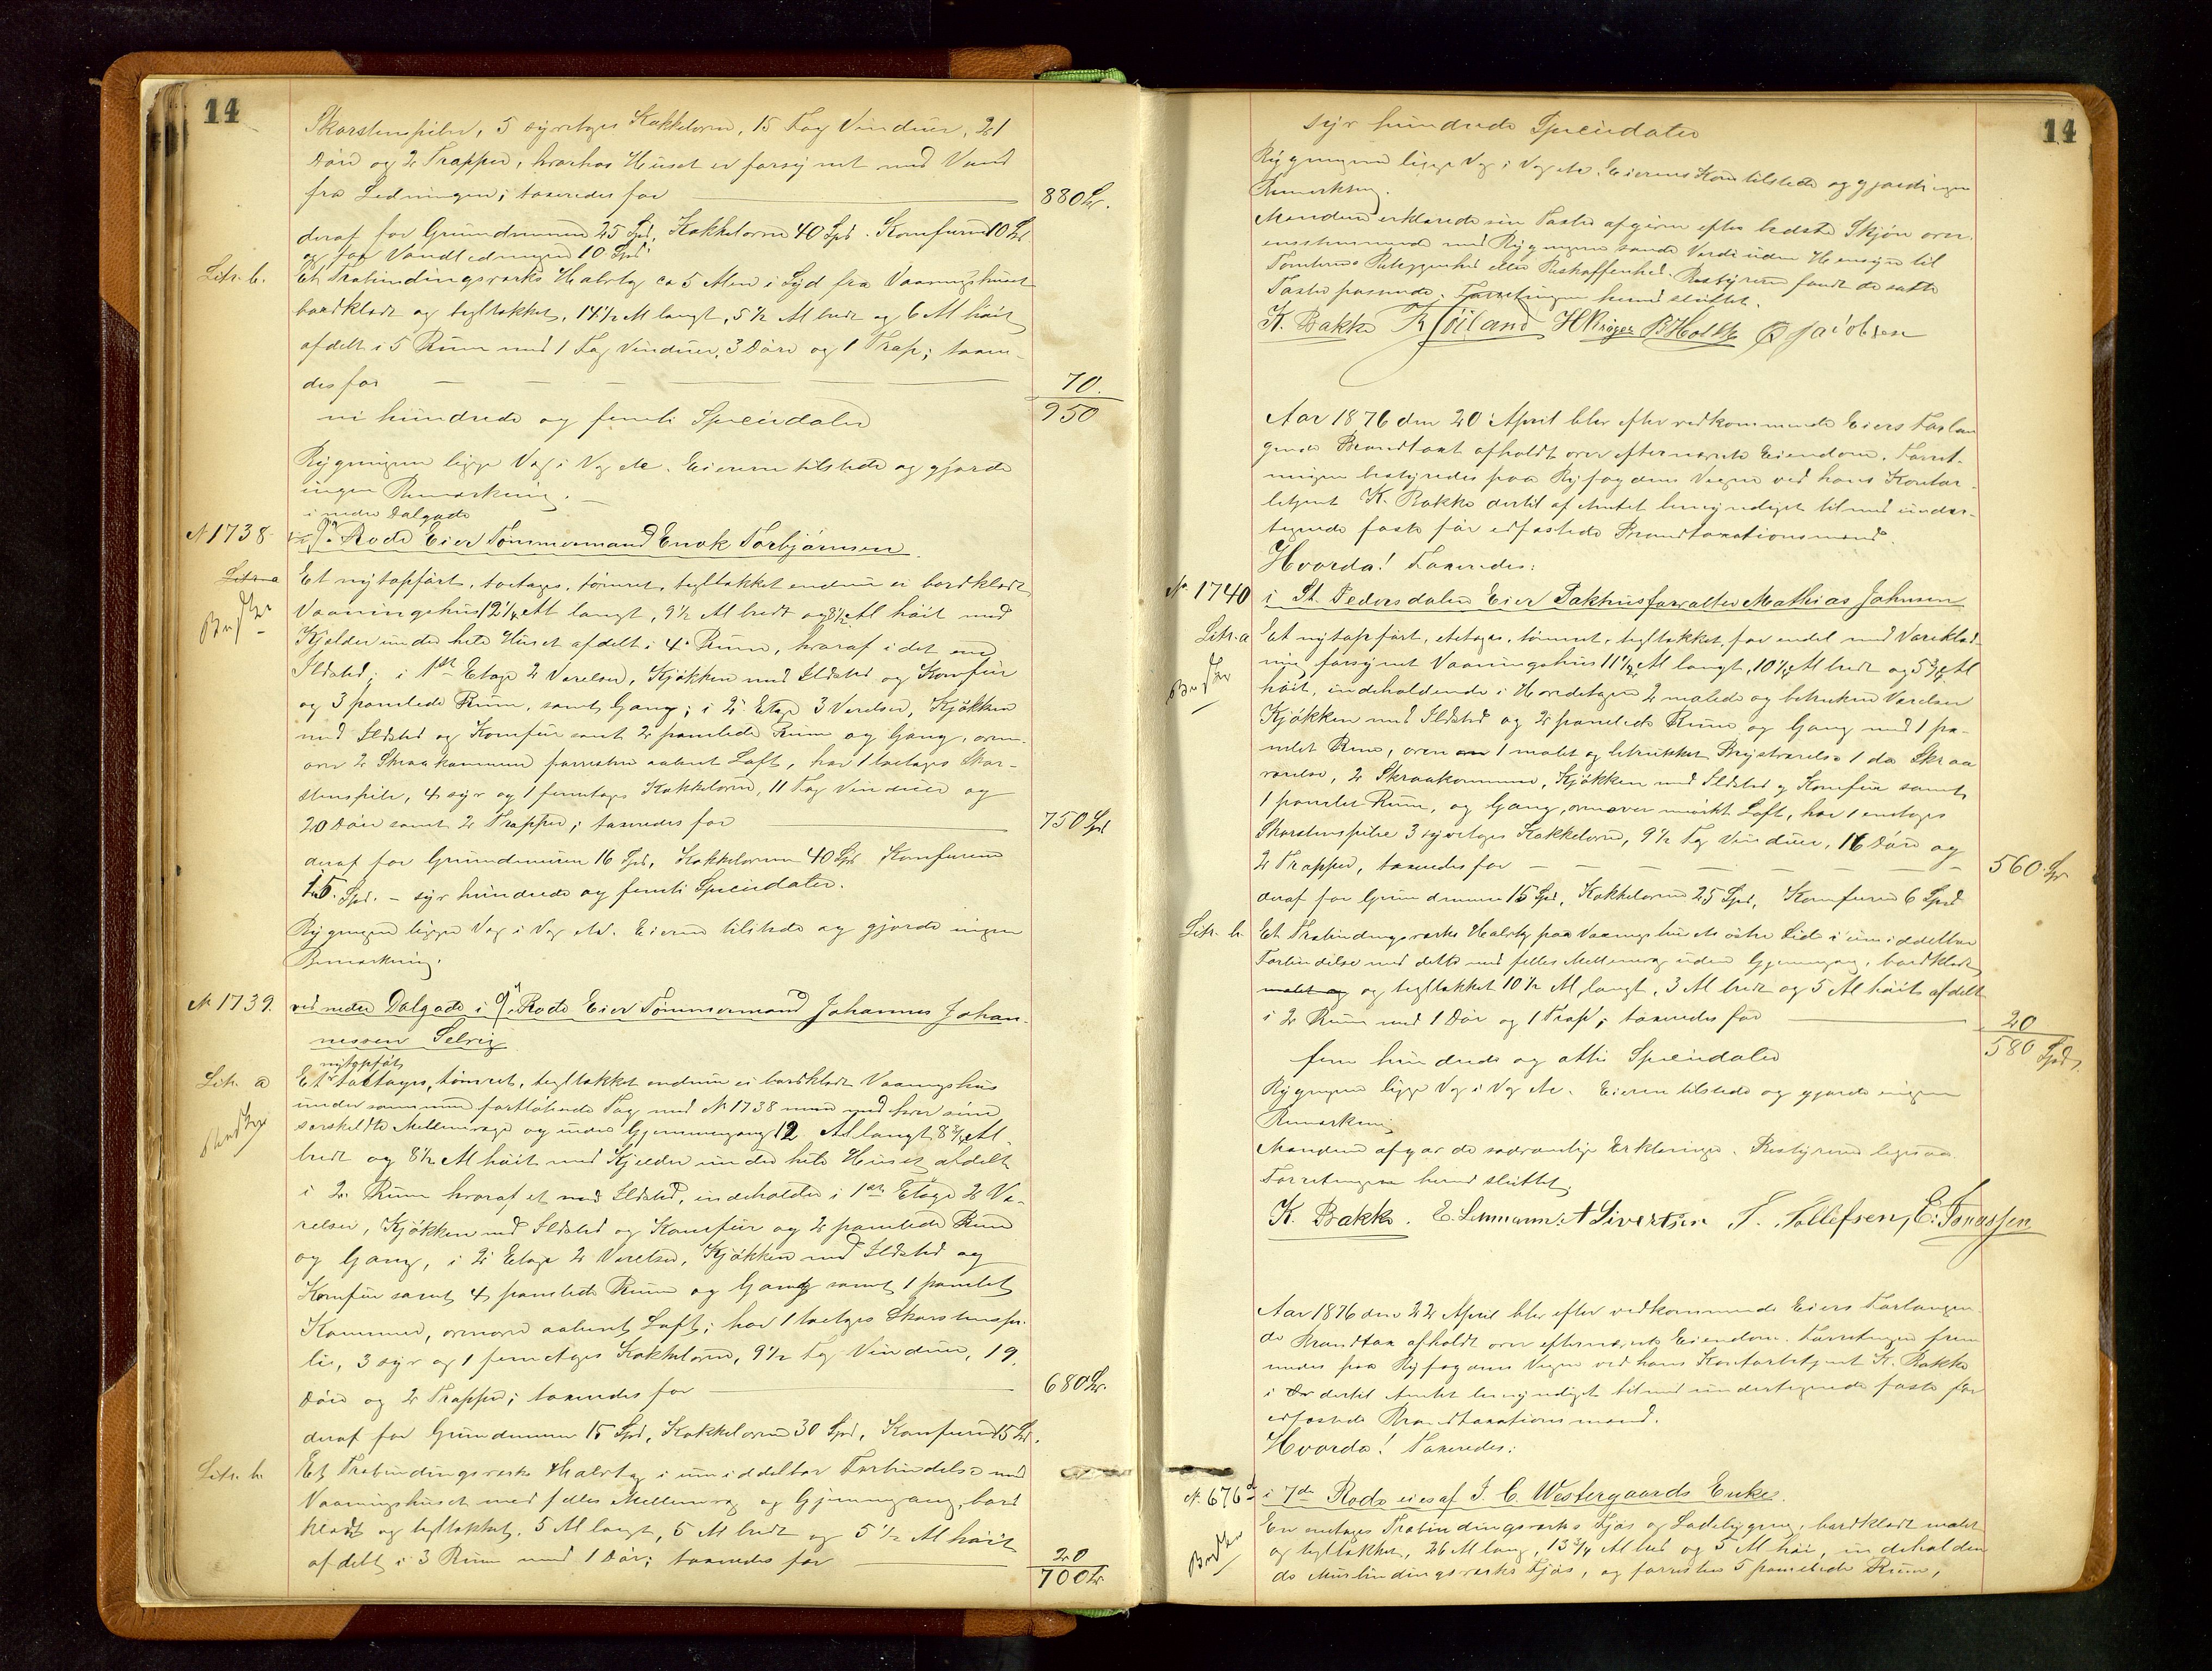 14
Skorstenspiber, 5 syvetages Kakkelovne, 15 Fag Vinduer, 21
Døre og 2 Trapper, hvorhos Huset er forsynet med Vand
fra Ledningen; taxeredes for 880 Sp.
deraf for Grundmuren 25 Spd, Kakkelovne 40 Spd. Komfurene 10 Spd
og for Vandledningen 10 Spd.
Litr. b. Et Træbindingsværks Halvtag ca 5 Alen i Syd fra Vaaningshuset
bordklædt og tegltækket, 14 1/2 Al langt, 5 1/2 Al bredt og 6 Al høit
afdelt i 5 Rum med 1 Fag Vinduer, 3 Døre og 1 Trap; taxere-
des for 70.
950
ni hundrede og femti Speciedaler
Bygningen ligge Væg i Væg etc. Eieren tilstede og gjorde
ingen Bemærkning.
i nedre Dalgade
N 1738 i 9de Rode Eier Tømmermand Enok Torbjørnsen
Litr. a Et nyopført, toetages, tømret, tegltækket endnu ei bordklædt
Vaaningshus 12 1/4 Al langt, 9 1/2 Al bredt og 8 1/2 Al høit med
Kjelder under hele Huset afdelt i 4 Rum, hvoraf i det ene
Ildsted; i 1ste Etage 2 Værelser, Kjøkken med Ildsted og Komfur
og 3 panelede Rum, samt Gang; i 2 Etage 3 Værelser, Kjøkken
med Ildsted og Komfur samt 2 panelede Rum og Gang, oven-
over 2 Skraakammere forresten aabent Loft, har 1 toetages Skor-
stenspibe, 4 syv og 1 femetages Kakkelovne, 11 Fag Vinduer og
20 Døre samt 2 Trapper; taxeredes for 750 Spd
deraf for Grundmuren 16 Spd, Kakkelovnene 40 Spd Komfurene
15 Spd. - syv hundrede og femti Speciedaler.
Bygningen ligger Væg i Væg etc. Eieren tilstede og gjorde ingen
Bemærkning.
N 1739. ved nedre Dalgade i 9de Rode Eier Tømmermand Johannes Johan-
nessen Selvig
nyopført
Litr. a Et toetages, tømret, tegltækket endnu ei bordklædt Vaaningshus
under sammen fortløbende Tag med N 1738 men med hver sine
særskildte Mellemvægge og uden Gjennemgang 12 Al langt, 8 3/4 Al
bredt og 8 1/2 Al høit med Kjelder under hele Huset afdelt
i 2 Rum hvoraf et med Ildsted, indeholder i 1ste Etage 2 Væ-
relser, Kjøkken med Ildsted og Komfur og 2 panelede Rum
og Gang, i 2 Etage 2 Værelser, Kjøkken med Ildsted og
Komfur samt 4 panelede Rum og Gang samt 1 panelet
Kammer, ovenover aabent Loft; har 1 toetages Skorstenspi-
be, 3 syv og 1 femetages Kakkelovne, 9 1/2 Fag Vinduer, 19
Døre og 2 Trapper; taxeredes for 680 Sp.
deraf for Grundmuren 15 Spd, Kakkelovne 30 Spd, Komfurene 15 Spd.
Litr. b. Et Træbindingsværks Halvtag i umiddelbar Forbindelse med
Vaaningshuset med fælles Mellemvæg og Gjennemgang, bord
klædt og tegltækket, 5 Al langt, 5 Al bredt og 5 1/2 Al høit
afdelt i 3 Rum med 1 Dør; taxeredes for 20
700 Sp
14
syv hundrede Speciedaler
Bygningen ligge Væg i Væg etc. Eierens Kone tilstede og gjorde ingen
Bemærkning.
Mændene erklærede sin Taxt afgiven efter bedste Skjøn over-
ensstemmende med Bygningens sande Værdi uden Hensyn til
Tomtens Beliggenhed eller Beskaffenhed. Bestyreren fandt de satte
Taxter passende. Forretningen hermed sluttet.
K. Bakke R Söiland H Krøger B Holk O Jacobsen
Aar 1876 den 20 April blev efter vedkommende Eiers Forlan
gende Brandtaxt afholdt over efternævnte Eiendom. Forret-
ningen bestyredes paa Byfogdens Vegne ved hans Kontor-
betjent K. Bakke dertil af Amtet bemyndiget tilmed under-
tegnede faste før edfæstede Brandtaxationsmænd.
Hvorda! Taxeredes:
No 1740 i St. Pedersdalen Eier Pakhusforvalter Mathias Johnsen
Litr. a Et nyopført, etetages, tømret, tegltækket, for endel med Væreklæd-
ning forsynet Vaaningshus 11 1/2 Al langt, 10 1/4 Al bredt og 5 3/4 Al
høit, indeholdende i Hovedetagen 2 malede og betrukne Værelser
Kjøkken med Ildsted og 2 panelede Rum og Gang med 1 pa-
nelet Rum, oven 1 malet og betrukket Kvistværelse 1 do Skraa
værelse, 2 Skraakammere, Kjøkken med Ildsted og Komfur samt
1 panelet Rum, og Gang, ovenover mørkt Loft, har 1 enetages
Skorstenspibe 3 syvetages Kakkelovne, 9 1/2 Fag Vinduer, 16 Døre og
2 Trapper, taxeredes for 560 Sp
deraf for Grundmuren 15 Spd, Kakkelovne 25 Spd, Komfuren 6 Spd
Litr. b. Et Træbindingsværks Halvtag paa Vaaningshusets østre Side i umiddelbar
Forbindelse med dette med fælles Mellemvæg uden Gjennemgang, bordklædt
malet og og tegltækket 10 1/2 Al langt, 3 Al bredt og 5 Al høit afdelt
i 2 Rum med 1 Dør og 1 Trap; taxeredes for 20
580 Spd.
fem hundrede og otti Speciedaler
Bygningen ligge Væg i Væg etc. Eieren tilstede og gjorde ingen
Bemærkning
Mændene afgav de sædvanlige Erklæringer. Bestyreren ligesaa
Forretningen hermed sluttet.
K. Bakke. E. Lemmann. A Sivertsen T. Tollefsen, E. Jonassen
Aar 1876 den 22 April blev efter vedkommende Eiers Forlangen
de Brandtax afholdt over efternævnte Eiendom. Forretningen frem
medes paa Byfogdens Vegne ved hans Kontorbetjent K. Bakke
i dertil Amtet bemyndiget tilmed undertegnede faste før
edfæstede Brandtaxationsmænd.
Hvorda! Taxeredes:
N. 676a i 7de Rode eies af J. C. Westergaards Enke.
En enetages Træbindingsværks Fjøs og Ladebygning, bordklædt malet
og tegltækket, 26 Al lang, 13 3/4 Al bred og 5 Al høi, indeholden
de Murbindingsværks Fjøs, og forresten 5 panelede Rum,